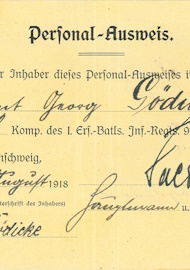 Personal-Ausweis.
r Inhaber dieses Personal-Ausweises i
Georg Gödi
Komp. des I. Ers.-Batls. Inf.-Regts. 9
nschweig,
August 1918
Hauptmann u.
terschrift des Inhabers)
ödicke